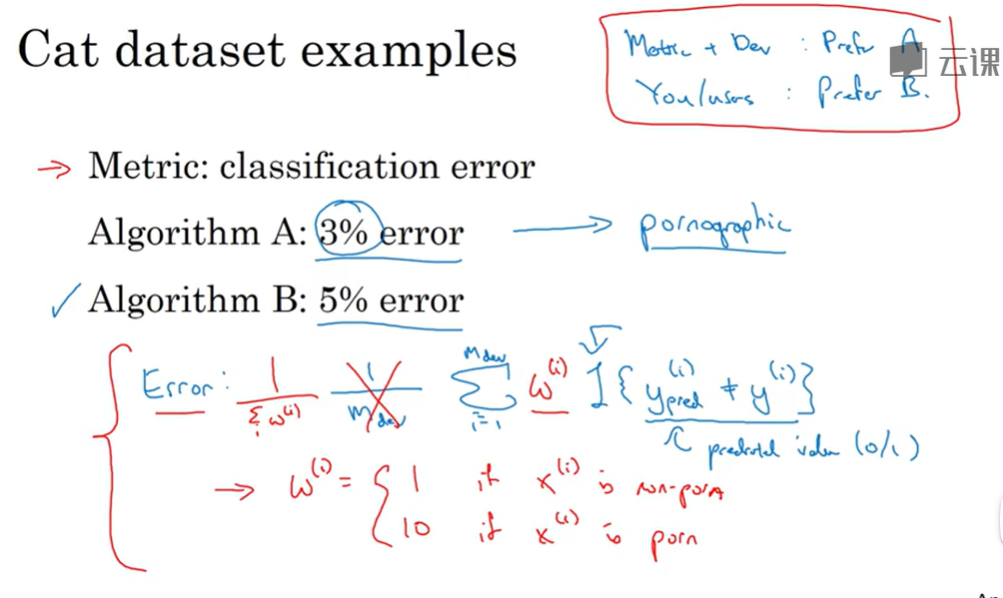 Cat dataset examples
Metric + Dev : Prefer A
You/users : Prefer B.
云课
→ Metric: classification error
Algorithm A: 3% error → pornographic
✓ Algorithm B: 5% error
Error: 1/Σᵢ w⁽ⁱ⁾ 1/m_dev Σ_{i=1}^{m_dev} w⁽ⁱ⁾ I{y_pred⁽ⁱ⁾ ≠ y⁽ⁱ⁾}
predicted value (0/1)
→ w⁽ⁱ⁾ = { 1 if x⁽ⁱ⁾ is non-porn
10 if x⁽ⁱ⁾ is porn